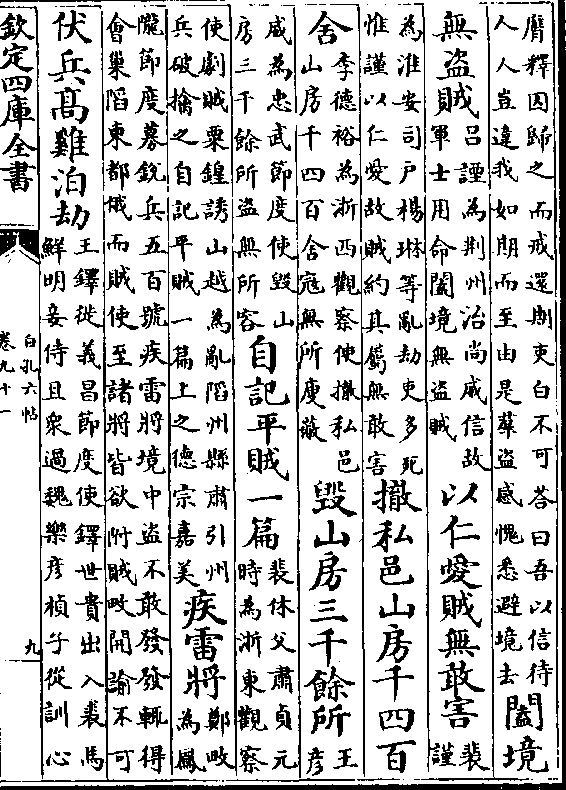 膺釋囚歸之而戒還期吏白不可荅曰吾以信待
人人豈違我如期而至由是羣盜感愧悉避境去
闔境
無盜賊
吕諲為荆州治尚威信故
軍士用命闔境無盜賊
以仁愛賊無敢害
裴
謹
為淮安司户楊琳等亂劫吏多死
惟謹以仁愛故賊約其屬無敢害
撤私邑山房千四百
舍
李德裕為浙西觀察使撤私邑
山房千四百舍寇無所廋蔽
毀山房三千餘所
王
彦
威為忠武節度使毀山
房三千餘所盜無所容
自記平賊一篇
裴休父肅貞元
時為浙東觀察
使劇賊栗鍠誘山越為亂陷州縣肅引州
兵破擒之自記平賊一篇上之德宗嘉美
疾雷將
鄭畋
為鳳
隴節度募銳兵五百號疾雷將境中盜不敢發發輒得
會巢陷東都俄而賊使至諸將皆欲附賊畋開諭不可
伏兵髙雞泊劫
王鐸徙義昌節度使鐸世貴出入裘馬
鮮明妾侍且衆過魏樂彦楨子從訓心
欽定四庫全書
白孔六帖
卷九十一
九